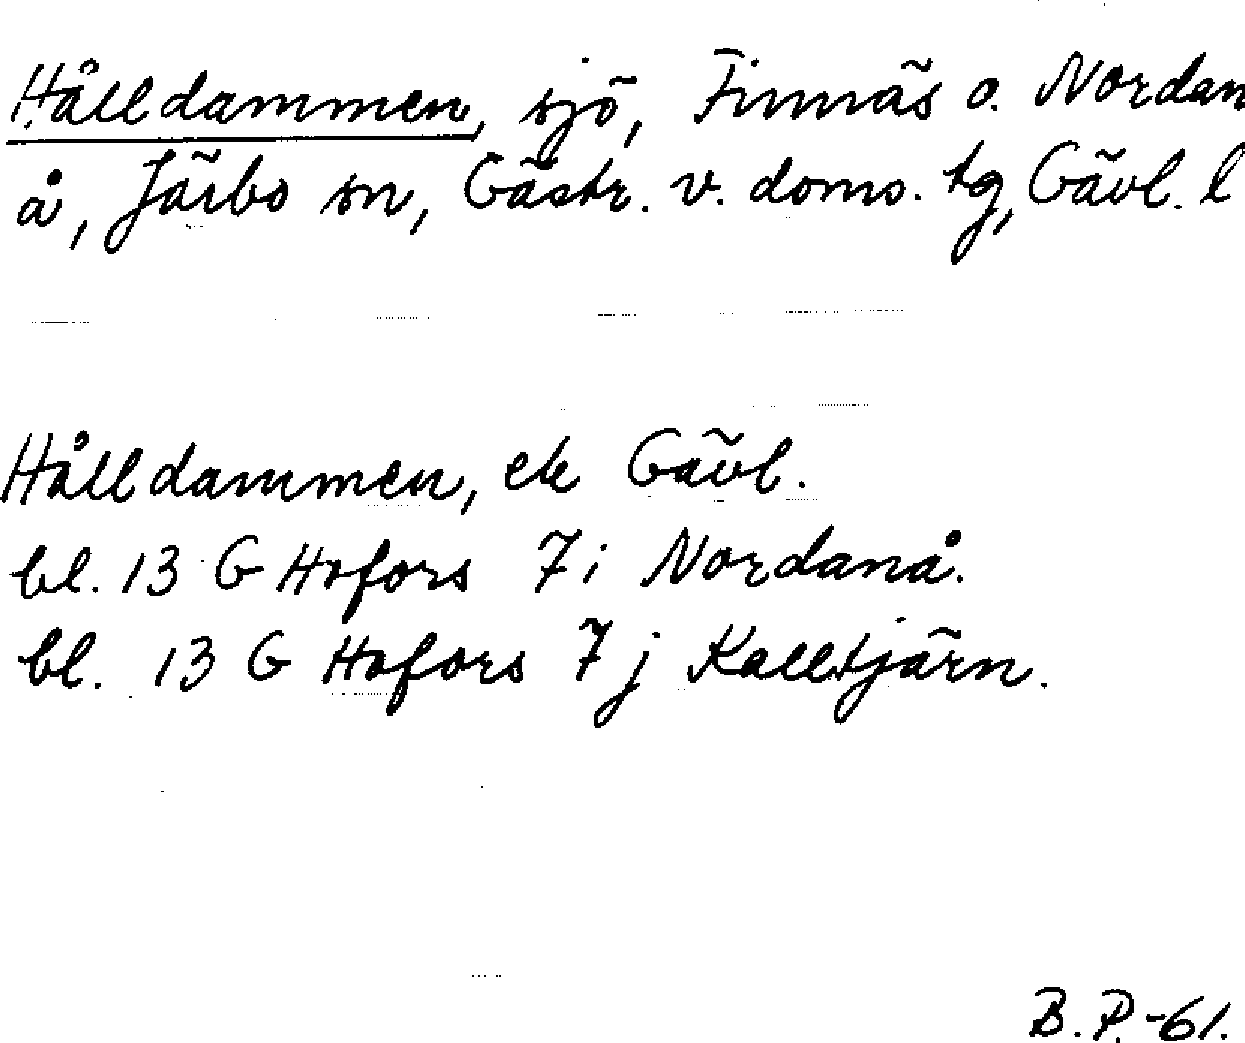 Hålldammen, sjö, Finnäs o. Nordan
å, Järbo sn, Gästr. v. doms. tg, Gävl. l
Hålldammen, ek Gävl.
bl. 13 G Hofors 7 i Nordanå.
bl. 13 G Hofors 7 j Kalltjärn.
B.P.-61.